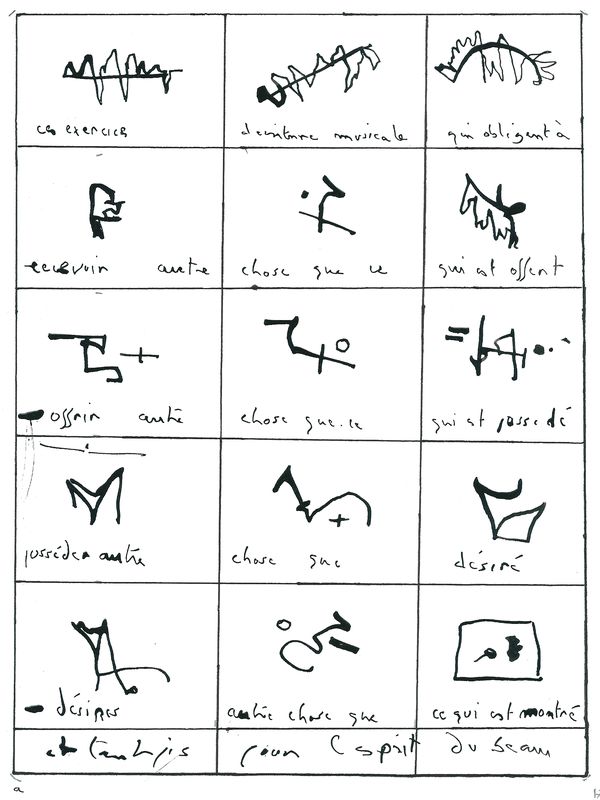 ces exercices d'écriture musicale qui obligent à
recevoir autre chose que ce qui est offert
offrir autre chose que ce qui est possédé
posséder autre chose que désiré
désirer autre chose que ce qui est montré
et tant pis pour l'esprit du beau
a b